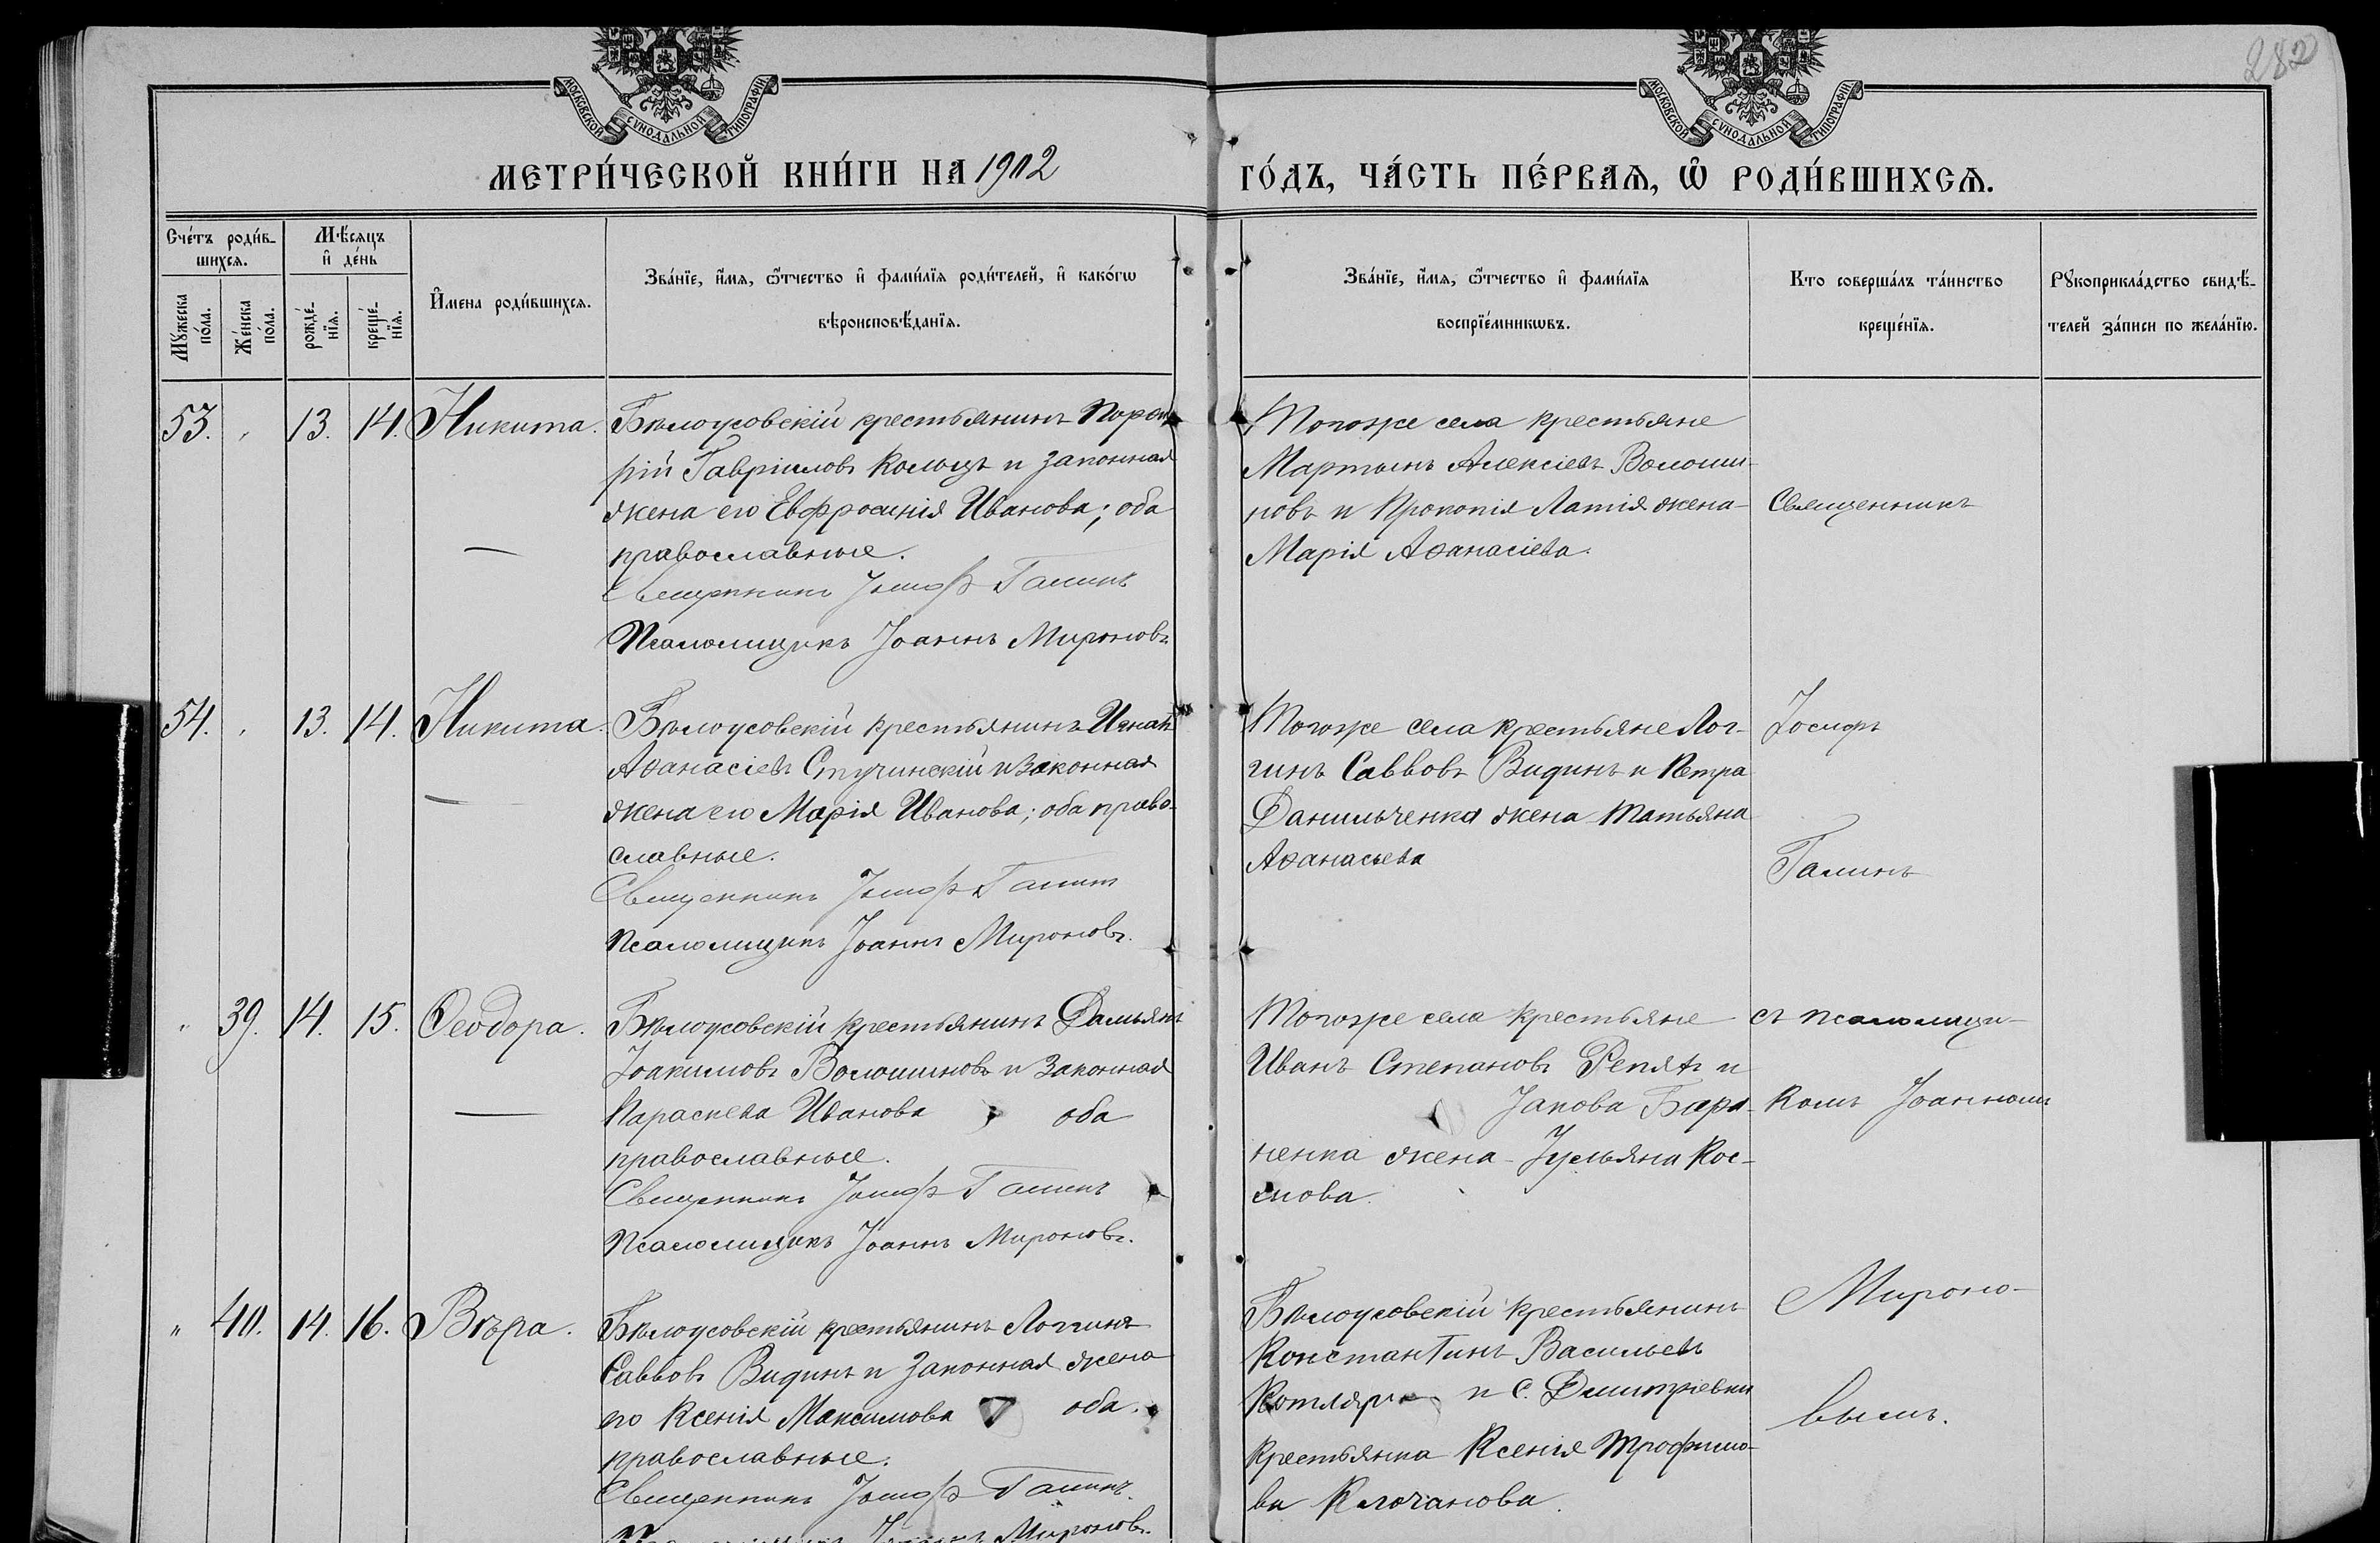 282
МОСКОВСКОЙ СУНОДАЛЬНОЙ ТИПОГРАФІИ
МОСКОВСКОЙ СУНОДАЛЬНОЙ ТИПОГРАФІИ
МЕТРИ́ЧЕСКОЙ КНИ́ГИ НА 1902
ГО́ДЪ, ЧА́СТЬ ПЕ́РВАѦ, Ѡ РОДИ́ВШИХСѦ.
Сче́тъ роди́в-
шихсѧ.
Мѣ́сѧцъ
и҆ де́нь
Мꙋ́жеска
по́ла.
Же́нска
по́ла.
рожде́-
нїѧ.
креще́-
нїѧ.
И҆мена роди́вшихсѧ.
Зва́нїе, и҆́мѧ, ѻ҆́тчество и҆ фами́лїѧ роди́телей, и҆ како́гѡ
вѣроисповѣ́данїѧ.
Зва́нїе, и҆́мѧ, ѻ҆́тчество и҆ фами́лїѧ
воспрїе́мникѡвъ.
Кто соверша́лъ та́инство
креще́нїѧ.
Рꙋкоприкла́дство свидѣ́-
телей за́писи по жела́нїю.
53. " 13. 14. Никита.
Бѣлоусовскій крестьянинъ Порфи
рій Гавріиловъ Кольцъ и законная
жена его Евфросинія Иванова; оба
православные.
Священникъ Іосифъ Галинъ
Псаломщикъ Іоаннъ Мироновъ
Тогоже села крестьяне
Мартынъ Алексіевъ Волоши-
новъ и Прокопія Латія жена
Марія Аѳанасіева.
Священникъ
54. " 13. 14. Никита.
Бѣлоусовскій крестьянинъ Игнатъ
Аѳанасіевъ Стучинскій и законная
жена его Марія Иванова; оба право-
славные.
Священникъ Іосифъ Галинъ
Псаломщикъ Іоаннъ Мироновъ.
Тогоже села крестьяне Лог-
гинъ Саввовъ Видинъ и Петра
Данильченка жена Татьяна
Аѳанасьева
Іосифъ
Галинъ
" 39. 14. 15. Ѳеодора.
Бѣлоусовскій крестьянинъ Дамьянъ
Іоакимовъ Волошиновъ и законная
Параскева Иванова оба
православные.
Священникъ Іосифъ Галинъ
Псаломщикъ Іоаннъ Мироновъ.
Тогоже села крестьяне
Иванъ Степановъ Репяхъ и
Іакова Бара-
ненка жена Іульяна Кос-
мова.
съ псаломщи-
комъ Іоанномъ
" 40. 14. 16. Вѣра.
Бѣлоусовскій крестьянинъ Логгинъ
Саввовъ Видинъ и законная жена
его Ксенія Максимова оба
православные.
Священникъ Іосифъ Галинъ.
Псаломщикъ Іоаннъ Мироновъ.
Бѣлоусовскій крестьянинъ
Константинъ Васильевъ
Котляръ и с. Дмитріевки
крестьянка Ксенія Трофимо-
ва Клочанова.
Мироно-
вымъ.